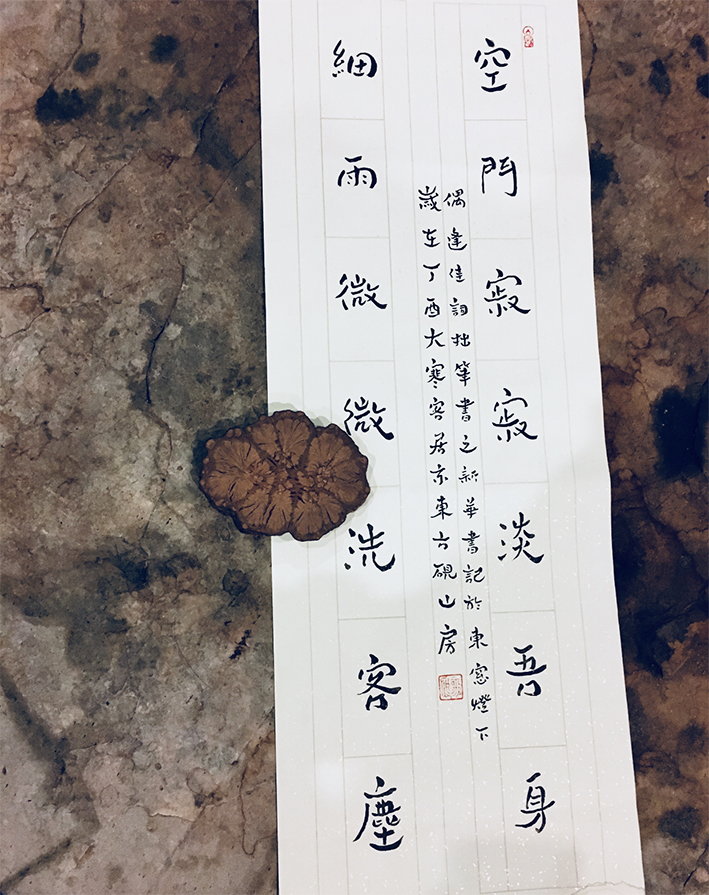 空門寂寂淡吾身
細雨微微洗客塵
偶逢佳詞拙筆書之新華書記於東窓燈下
歲在丁酉大寒客居京東古硯山房